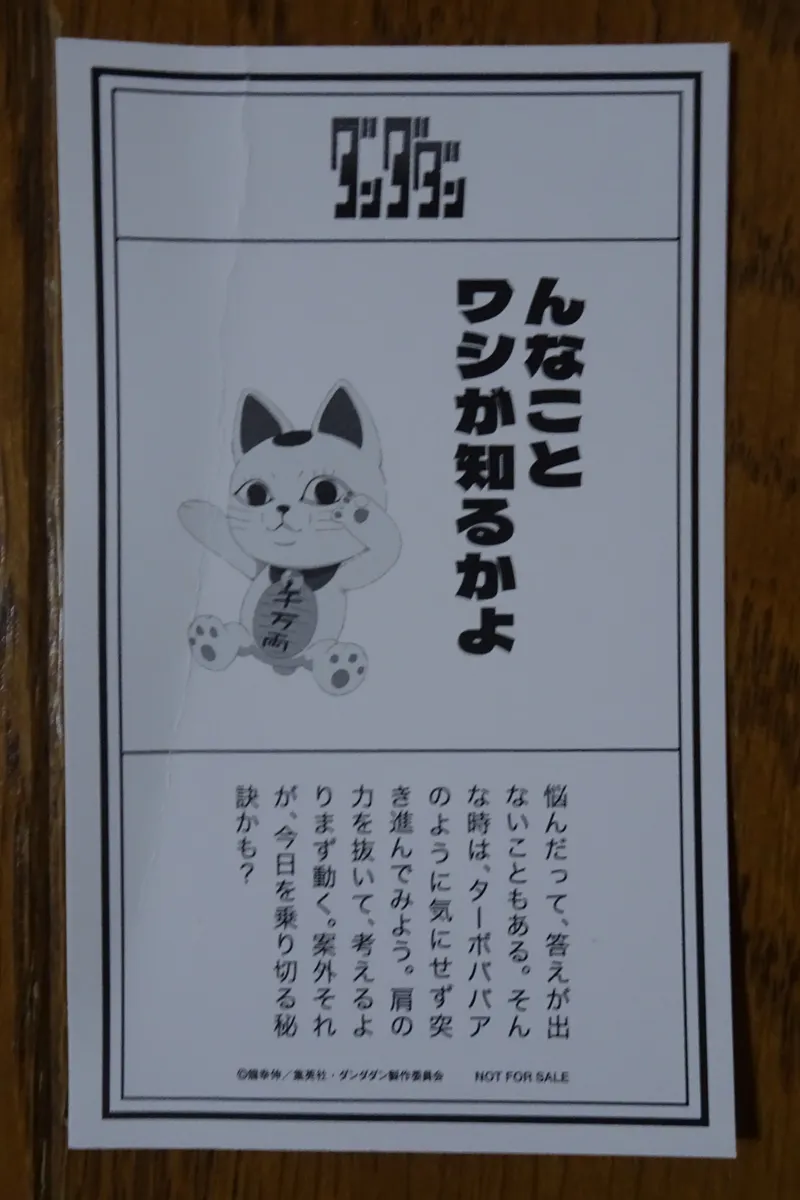 ダンダダン
んなこと
ワシが知るかよ
千万両
悩んだって、答えが出
ないこともある。そん
な時は、ターボババア
のように気にせず突
き進んでみよう。肩の
力を抜いて、考えるよ
りまず動く。案外それ
が、今日を乗り切る秘
訣かも?
©龍幸伸/集英社・ダンダダン製作委員会
NOT FOR SALE